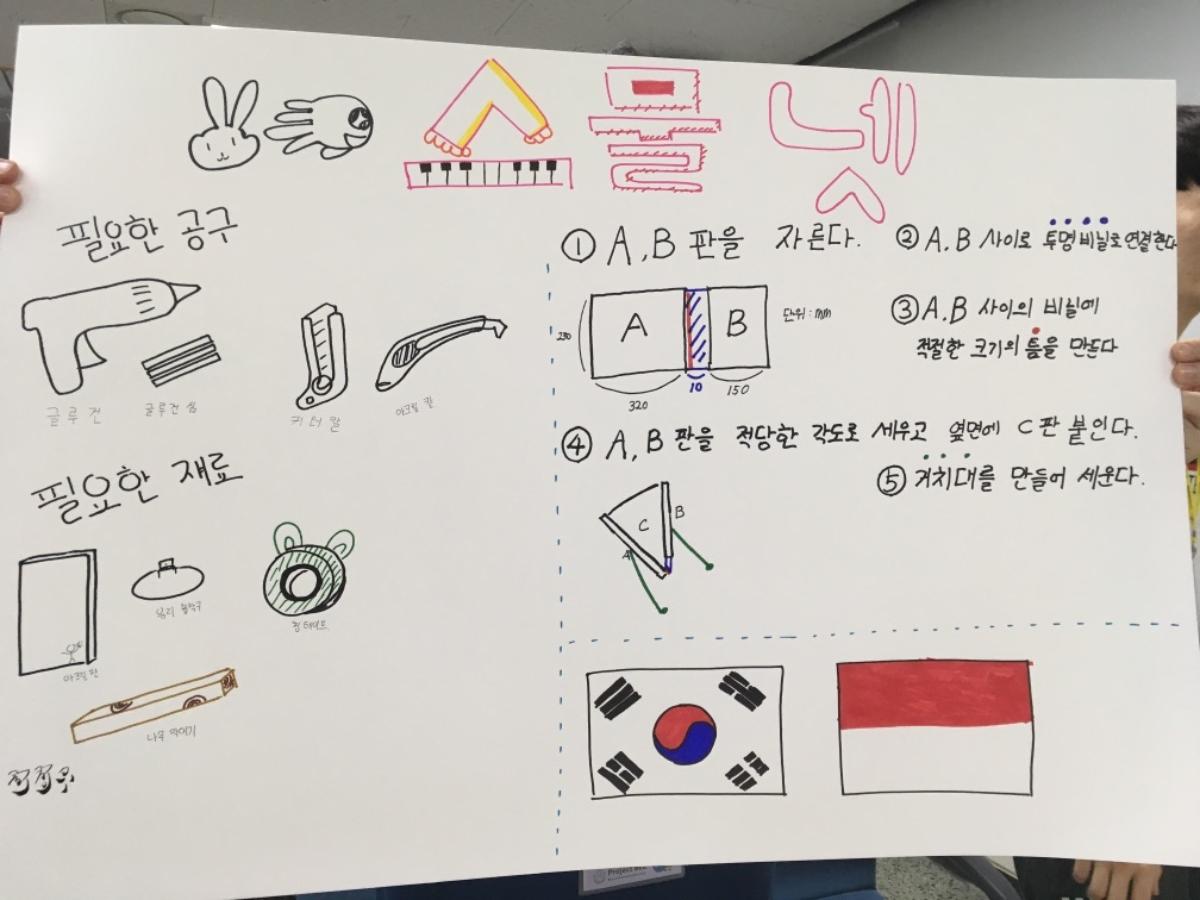 필요한 공구
글루건
글루건 심
커터칼
아크릴 칼
필요한 재료
아크릴 판
청테이프
나무 막대기
① A,B 판을 자른다.
② A,B 사이로 투명 비닐로 연결한다
A
B
단위:mm
320
10
150
③ A,B 사이의 비닐에
적절한 크기의 틈을 만든다
④ A,B 판을 적당한 각도로 세우고 옆면에 C판 붙인다.
⑤ 거치대를 만들어 세운다.
A
C
B